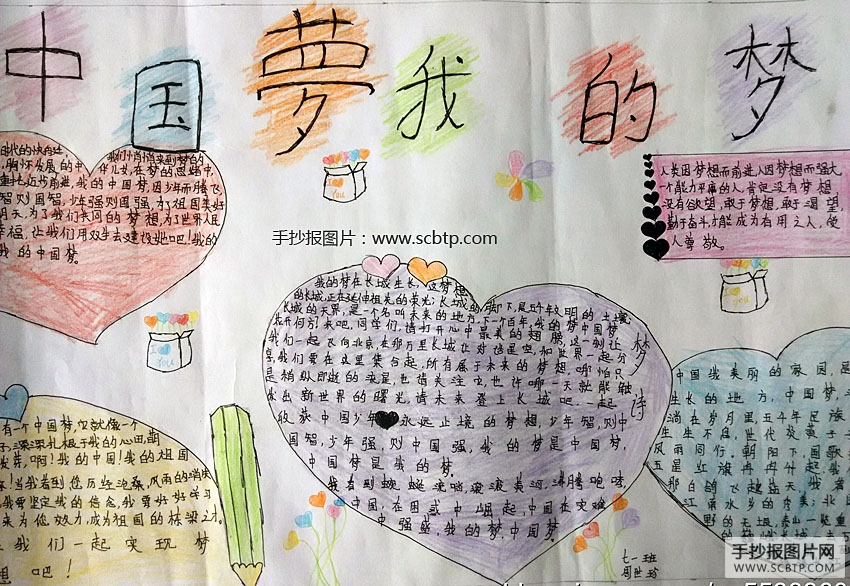 中国夢我的梦
时代的快车
我们悄悄来到梦的
胸怀发展的中华儿女,在梦的思绪中,
前进,我的中国梦,因少年而腾飞,
智则国智,少年强则国强,为了祖国美好
明天,为了我们共同的梦想,为了世界人民
幸福,让我们用双手去建设她吧!我的
我的中国梦。
I
You
人类因梦想而前进,人因梦想而强大
一个能力平庸的人,肯定没有梦想
没有欲望,敢于梦想,敢于渴望,
勤于奋斗,才能成为有用之人,使
人尊敬。
手抄报图片:www.scbtp.com
I
you
I
you
梦
诗
我的梦在长城生长,这梦想
的长城,正在延伸祖先的荣光;长城的脚下,是五千年文明的土壤,
长城的天界,是一个名叫未来的地方,下一个百年,我的梦中国梦
花开何方?来吧,同学们,请打开心中最美的翅膀,
我们一起飞向北京,在那万里长城让对话
享,我们要在这里集合起,所有属于未来的梦想,哪怕只
是稍纵即逝的流星,也请关注它,也许哪一天就能触
发出新世界的曙光,请未来登上长城吧,一起
收获中国少年永远止境的梦想,少年智,则中
国智,少年强,则中国强,我的梦是中国梦,
中国梦是我的梦。
我看到蜿蜒流淌滚滚黄河,沸腾咆哮,
中国,在困或中崛起,中国在灾难
中强盛,我的梦,中国梦。
中国我美丽的家园,是
生长的地方,中国梦,
淌在岁月里,五千年足
生生不息,世代炎黄子
风雨同行。朝阳下,国歌
五星红旗冉冉升起,我
那白鸽飞越蓝天,我看
江南水乡的秀美;北
野的无垠,泰山一览重
有一个中国梦,它就像一个
子,深深扎根于我的心田,萌
发芽,啊!我的中国!我的祖国
!当我看到您历经沧桑,风雨的洗
我要坚定我的信念,我要好好学习
来为您效力,成为祖国的栋梁之才。
让我们一起实现梦
想吧!
七一班
手抄报图片网
WWW.SCBTP.COM